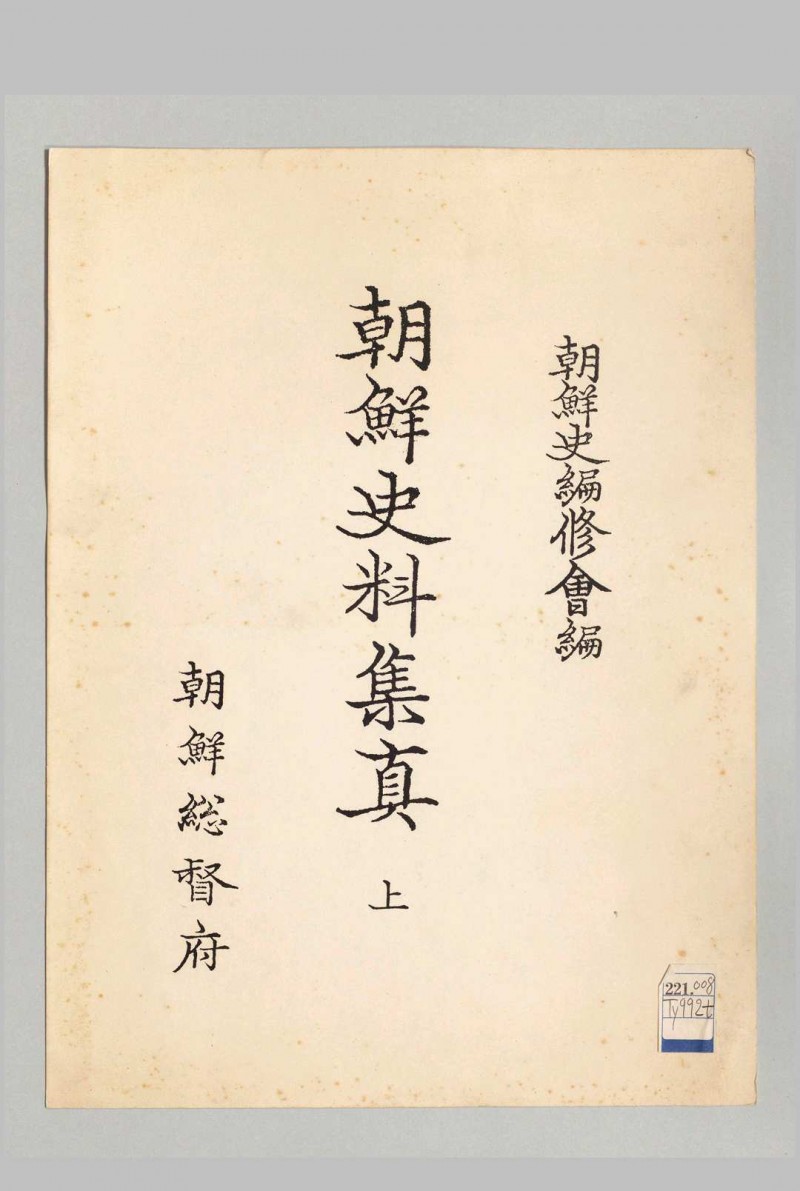 朝鮮史編修會編
朝鮮史料集真
上
朝鮮総督府
221.008
Ty992t